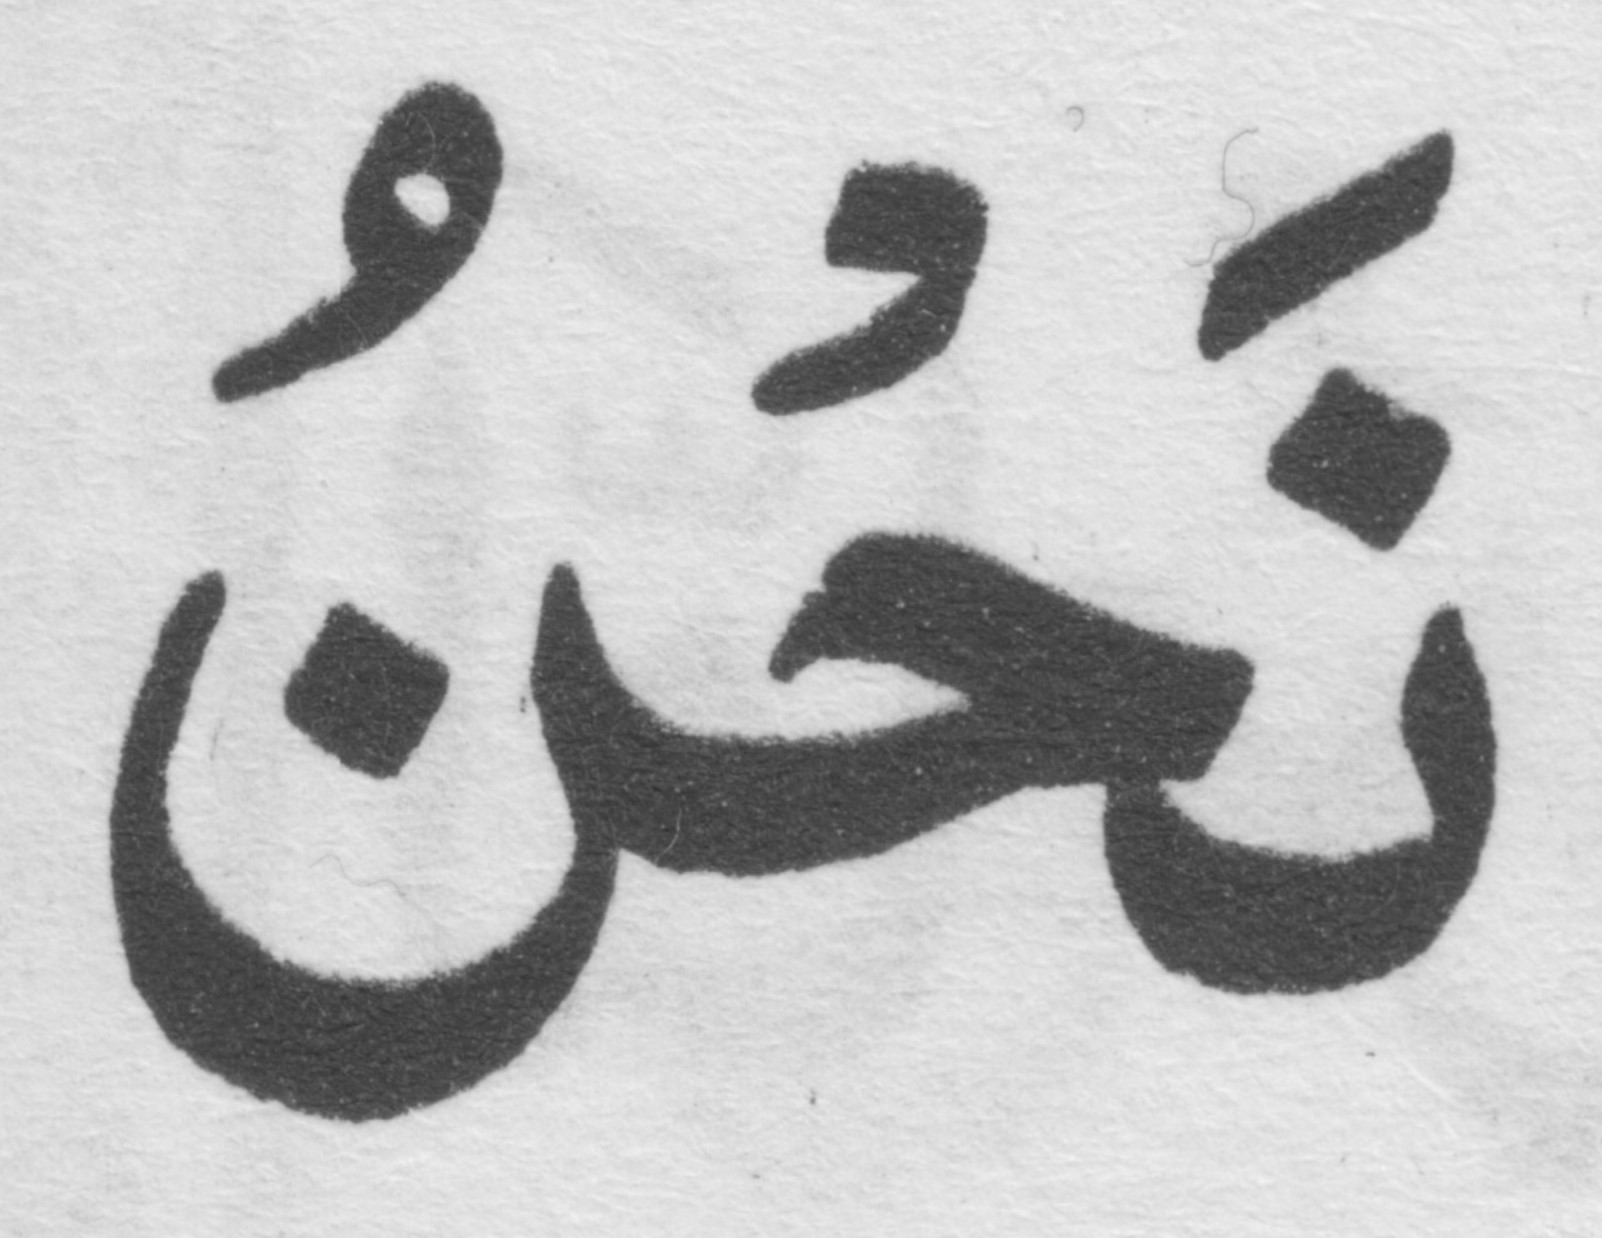 نَحْنُ